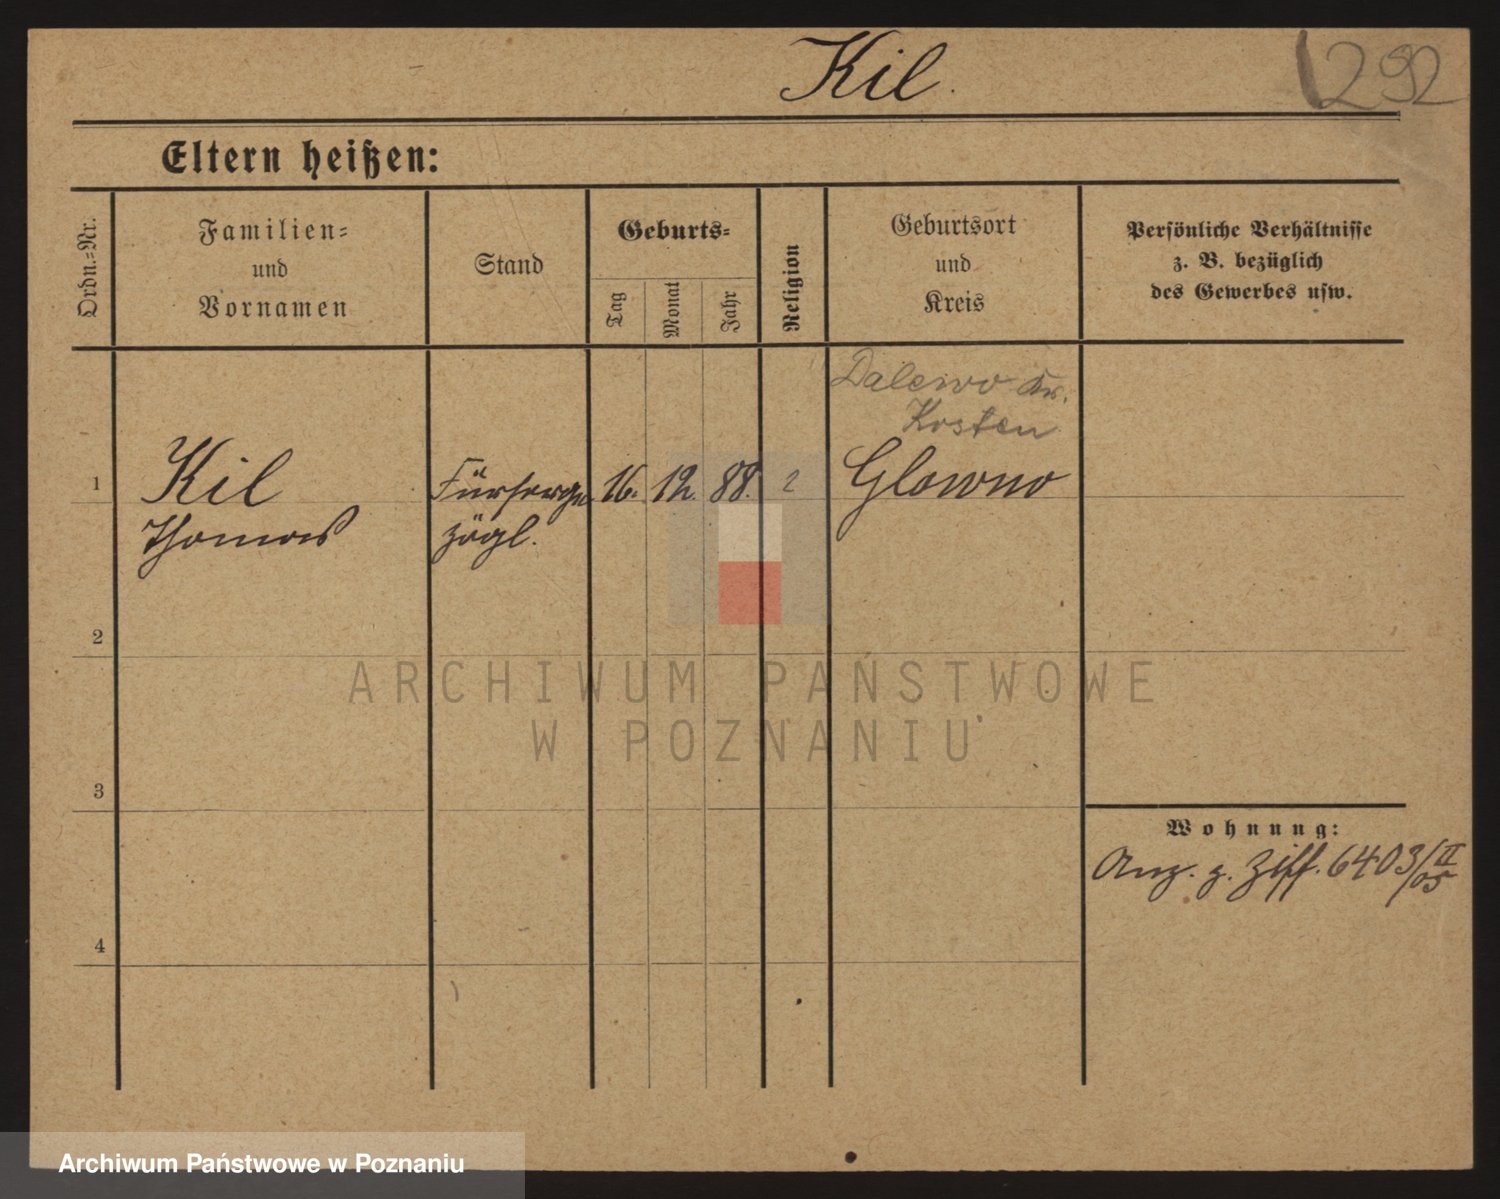 Kil.
292
Eltern heißen:
Ordn.-Nr.
Familien-
und
Vornamen
Stand
Geburts-
Tag
Monat
Jahr
Religion
Geburtsort
und
Kreis
Persönliche Verhältnisse
z. B. bezüglich
des Gewerbes usw.
Dalewo Kr.
Kosten
1
Kil
Thomas
Fürsorge
zögl.
16.
12.
88.
2
Glowno
2
3
4
Wohnung:
Anz. z. Ziff. 6403/II 05
ARCHIWUM PAŃSTWOWE
W POZNANIU
Archiwum Państwowe w Poznaniu